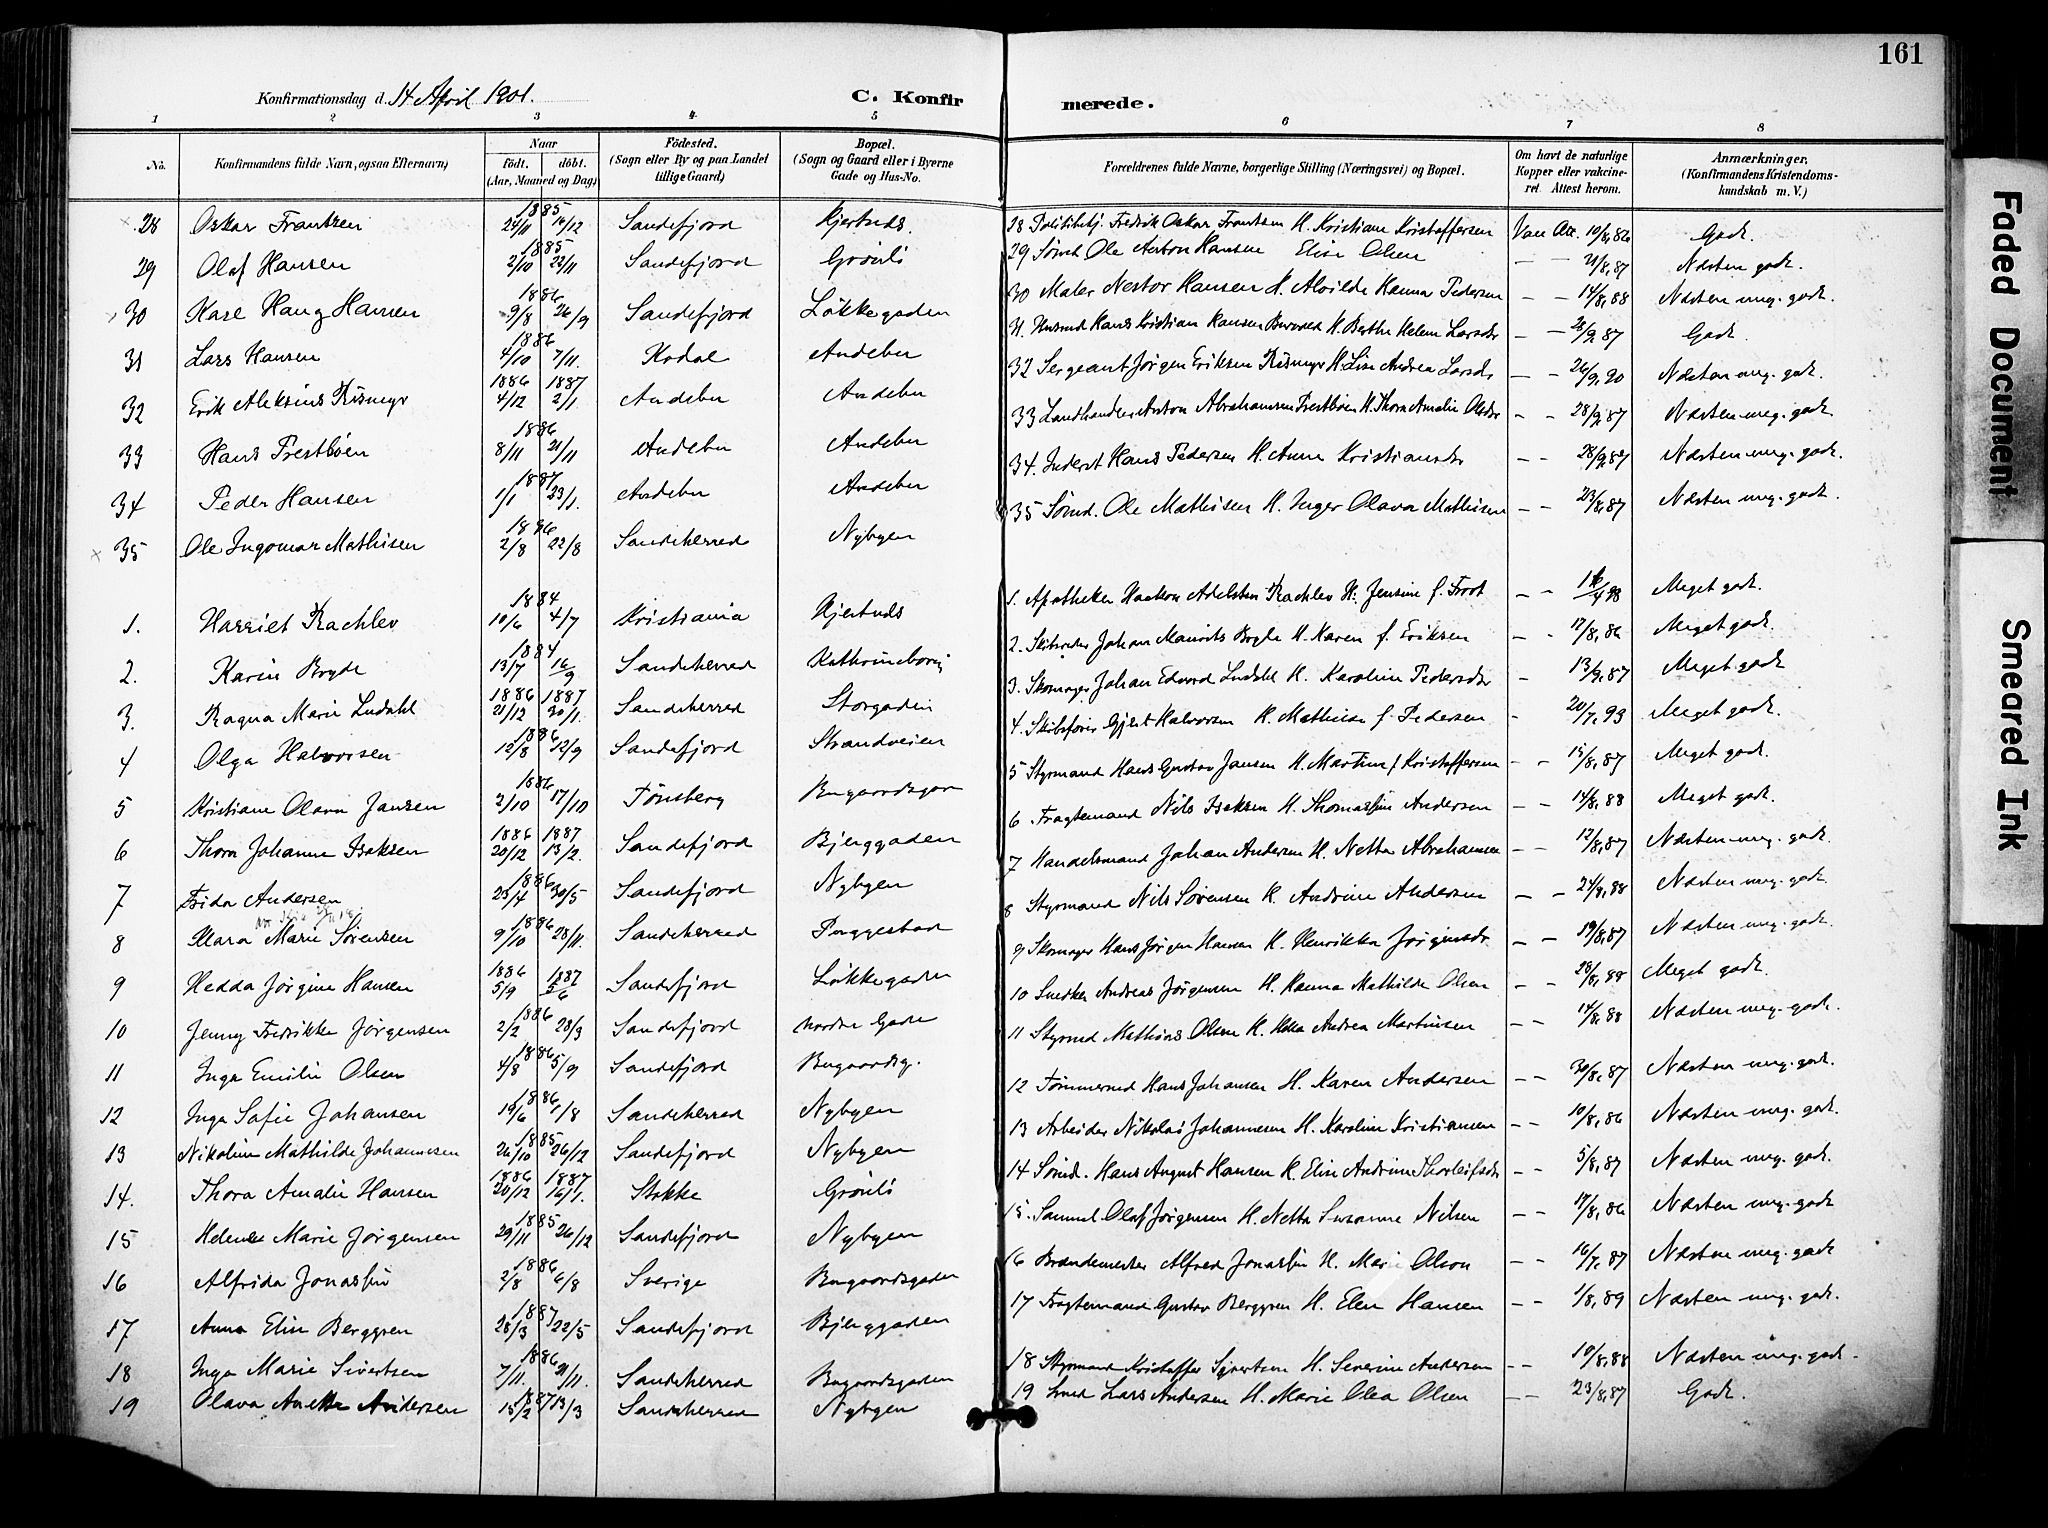 161
Konfirmationsdag d. 14 April 1901.
C. Konfirmerede.
1 2 3 4 5 6 7 8
No. Konfirmandens fulde Navn, ogsaa Efternavn) Naar født. døbt. (Aar, Maaned og Dag) Födested. (Sogn eller By og paa Landet tillige Gaard) Bopæl. (Sogn og Gaard eller i Byerne Gade og Hus-No. Forældrenes fulde Navne, borgerlige Stilling (Næringsvei) og Bopæl. Om havt de naturlige Kopper eller vakcineret. Attest herom. Anmærkninger. (Konfirmandens Kristendomskundskab m. V.)
28 Oskar Frantzen 1885 24/11 14/12 Sandefjord Kjertnds. 28 Fredrik Oskar Frantzen H. Kristiane Kristoffersen Vac. Att. 10/8,86 Godt.
29 Olaf Hansen 1885 2/10 22/11 Sandefjord Grønli 29 Sømd. Ole Anton Hansen Elise Olsen – – 21/8,87 Næsten godt.
30 Kare Haug Hansen 1886 9/8 26/9 Sandefjord Løkkegaden 30 Maler Nestor Hansen H. Alvilde Hanna Pedersen – – 14/8,88 Næsten mg. godt.
31 Lars Hansen 1886 4/10 7/11. Kodal Andebu 31 Husmd Hans Kristian Hansen H. Berthe Helene Larsdr – 28/9,87 Godt.
32 Erik Aleksius Rismyr 1886 4/12 1887 2/1. Andebu Andebu 32 Sergeant Jørgen Eriksen Rismyr H. Lise Andrea Larsdr – – 26/9,90 Næsten mg. godt.
33 Hans Prestbøen 1886 8/11 21/11 Andebu Andebu 33 Landhandler Anton Abrahamsen Prestbøen H. Thora Amalie Olsdr – – 28/9,87 Næsten mg. godt.
34 Peder Hansen 1887 1/1 23/1. Andebu Andebu 34. Inderst Hans Pedersen H. Anne Kristiansdr – – 28/9,87 Næsten mg. godt.
35 Ole Ingomar Mathisen 1886 2/8 22/8 Sandeherred Nybyen 35 Sømd. Ole Mathisen H. Inger Olava Mathisen – – 23/8,87 Næsten mg. godt.
1. Harriet Rachlev 1884 10/6 4/7 Kristiania Kjertnds 1. Apotheker Haakon Adelsten Rachlev H. Jensine f. Froot – – Meget godt.
2. Karin Bryde 1884 13/7 16/9 Sandeherred Kathrineborg 2. Skibsreder Johan Maurits Bryde H. Karen f. Eriksen – – 12/8,86 Meget godt.
3. Ragna Marie Ludahl 1886 21/12 1887 30/1. Sandeherred Storgaden 3. Skomager Johan Edvard Ludahl H. Karoline Pedersdr – 13/9,87 Meget godt
4 Olga Halvorsen 1886 12/8 12/9 Sandefjord Strandveien 4. Skibsfører Gjert Halvorsen H. Mathilde f. Pedersen – 20/7,93 Meget godt.
5 Kristiane Olava Jansen 1886 2/10 17/10 Tønsberg Bugaardsgan 5 Styrmand Hans Gustav Jansen H. Martine f. Kristoffersen – – 15/8,87 Meget godt.
6 Thora Johanne Isaksen 1886 20/12 1887 13/2. Sandefjord Bjerggaden 6 Fragtemand Nils Isaksen H. Thomassine Andersen – – 14/8,88 Meget godt.
7 Frida Andersen 1886 23/4 30/5 Sandefjord Nybyen 7 Handelsmand Johan Andersen H. Netta Abrahamsen – – 12/8,87 Næsten mg. godt.
8 Klara Marie Sørensen 1886 9/10 28/11. Sandeherred Preggestad 8 Styrmand Nils Sørensen H. Andrine Andersen – – 24/9,88 Næsten mg. godt.
9 Hedda Jørgine Hansen 1886 5/9 1887 5/6 Sandefjord Løkkegaden 9 Skomager Hans Jørgen Hansen H. Henrikka Jørginsdr. – – 19/8,87 Næsten mg. godt.
10 Jenny Fredrikke Jørgensen 1886 2/2 28/3 Sandefjord Nordre Gade 10 Snedker Andreas Jørgensen H. Hanna Mathilde Olsen – – 28/8,88 Meget godt.
11 Inga Emilie Olsen 1886 4/8 5/9 Sandefjord Bugaardsg. 11 Styrmd Mathias Olsen H. Andrea Martinsen – – 14/8,88 Næsten mg. godt.
12 Inga Sofie Johansen 1886 19/6 1/8 Sandeherred Nybyen 12 Tømmermd Hans Johansen H. Karen Andersen – – 30/8,87 Næsten mg. godt.
13 Nikoline Mathilde Johannesen 1885 26/10 26/12 Sandefjord Nybyen 13 Arbeider Nikolai Johannesen H. Karoline Kristiansen – – 10/8,86 Næsten mg. godt.
14. Thora Amalie Hansen 1886 20/12 1887 16/1. Stokke Grønli 14 Sømd. Hans August Hansen H. Elin Andrine Thorleifsdr – – 5/8,87 Næsten mg. godt.
15 Helene Marie Jørgensen 1885 29/11 26/12 Sandefjord Nybyen 15. Sømmd. Olaf Jørgensen H. Netta Susanne Nilsen – – 17/8,86 Næsten mg. godt
16 Alfrida Jonassin 1886 2/8 6/8 Sverige Bugaardsgaden 16 Brændemester Alfred Jonassin H. Marie Olson – – 16/7,87 Næsten mg. godt
17 Anna Elin Berggren 1887 28/3 22/5 Sandefjord Bjerggaden 17 Fragtemand Gustav Berggren H. Elen Hansen – – 1/8,89 Næsten mg. godt.
18 Inga Marie Sivertsen 1886 7/11. 21/11. Sandeherred Bugaardsgaden 18 Styrmand Kristoffer Sivertsen H. Severine Andersen – – 10/8,88 Næsten mg. godt.
19 Olava Anette Andersen 1887 15/2 13/3 Sandeherred Nybyen 19 Smed Lars Andersen H. Marie Olea Olsen – – 23/8,87 Godt.
Faded Document
Smeared Ink